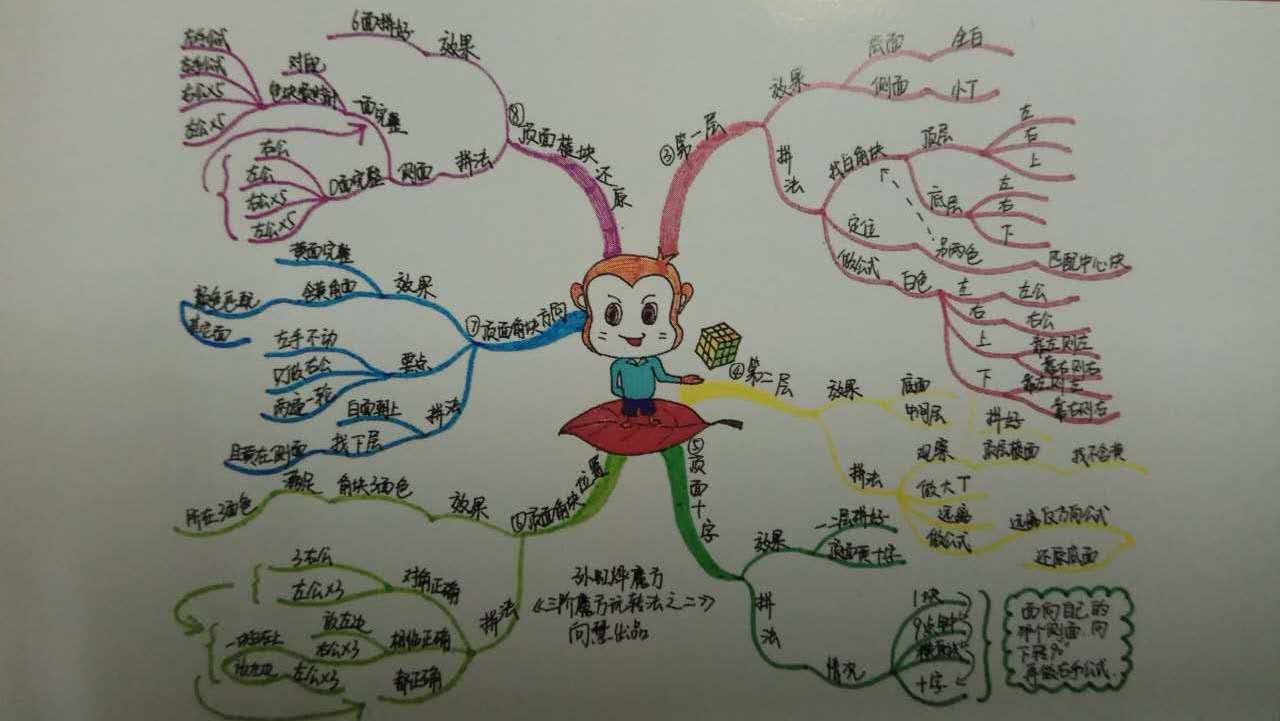 ③第一层
效果
底面
全白
侧面
小T
拼法
找白角块
顶层
左
右
上
底层
左
右
下
定位
另两色
匹配中心块
做公式
白色
左
左公
右
右公
上
靠左则左
靠右则右
下
靠左则左
靠右则右
④第二层
效果
底面
中间层
拼好
拼法
观察
顶层棱面
找不含黄
做大T
远离
做公式
远离反方向公式
还原底面
⑤顶面十字
效果
一二层拼好
顶面黄十字
拼法
情况
1块
9点钟
十字
面向自己的
那个侧面,向
下转90°
再做右手公式.
⑥顶面角块位置
效果
角块3面色
满足
所在3面色
拼法
对角正确
3右公
左公×3
相临正确
放左边
右公×3
都正确
左公×3
⑦顶面角块方向
效果
黄面完整
含黄角面
颜色匹配
要点
左手不动
只做右公
两遍一轮
拼法
白面朝上
找下层
且黄在侧面
⑧顶面棱块还原
效果
6面拼好
拼法
侧面
一面完整
对配
右手公式
左手公式
右公×5
左公×5
0面完整
右公
左公
右公×5
左公×5
孙虹烨魔方
《三阶魔方玩转法之二》
向慧出品